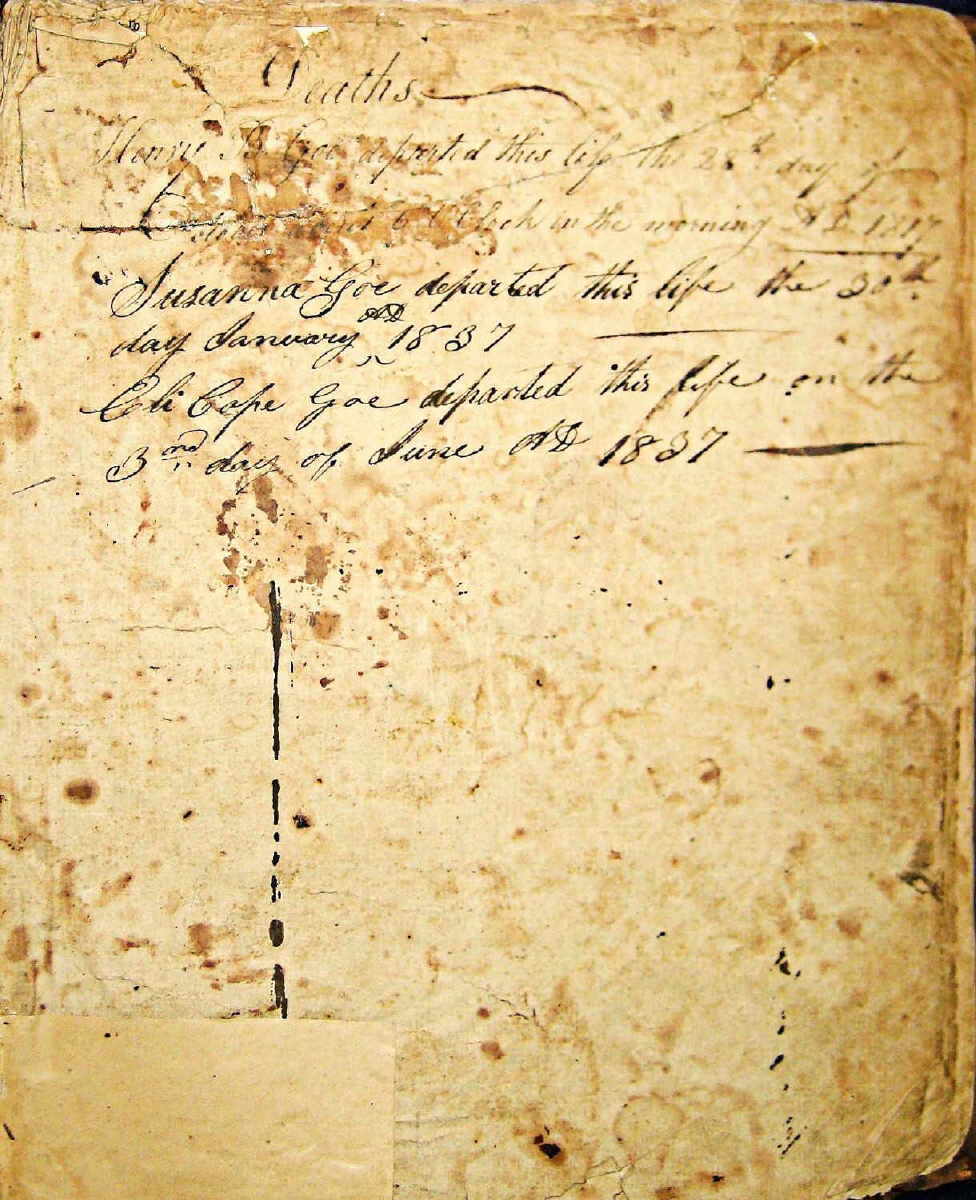 Deaths
Henry B Goe departed this life the day of
October about 6 O Clock in the morning AD
Susanna Goe departed this life the 30th
day January AD 1837
Eli Cope Goe departed this life on the
3nd day of June AD 1837